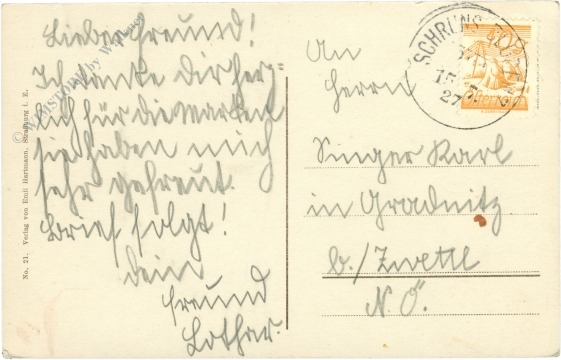 Lieber Freund!
Ich danke Dir herz-
lich für die Marken
sie haben mich
sehr gefreut.
Brief folgt!
Dein
Freund
Lothar.
An
Herrn
Singer Karl
in Gradnitz
b./Zwettl
N.Ö.
SCHRUNS
15
27
No. 21. Verlag von Emil Hartmann, Straßburg i. E.